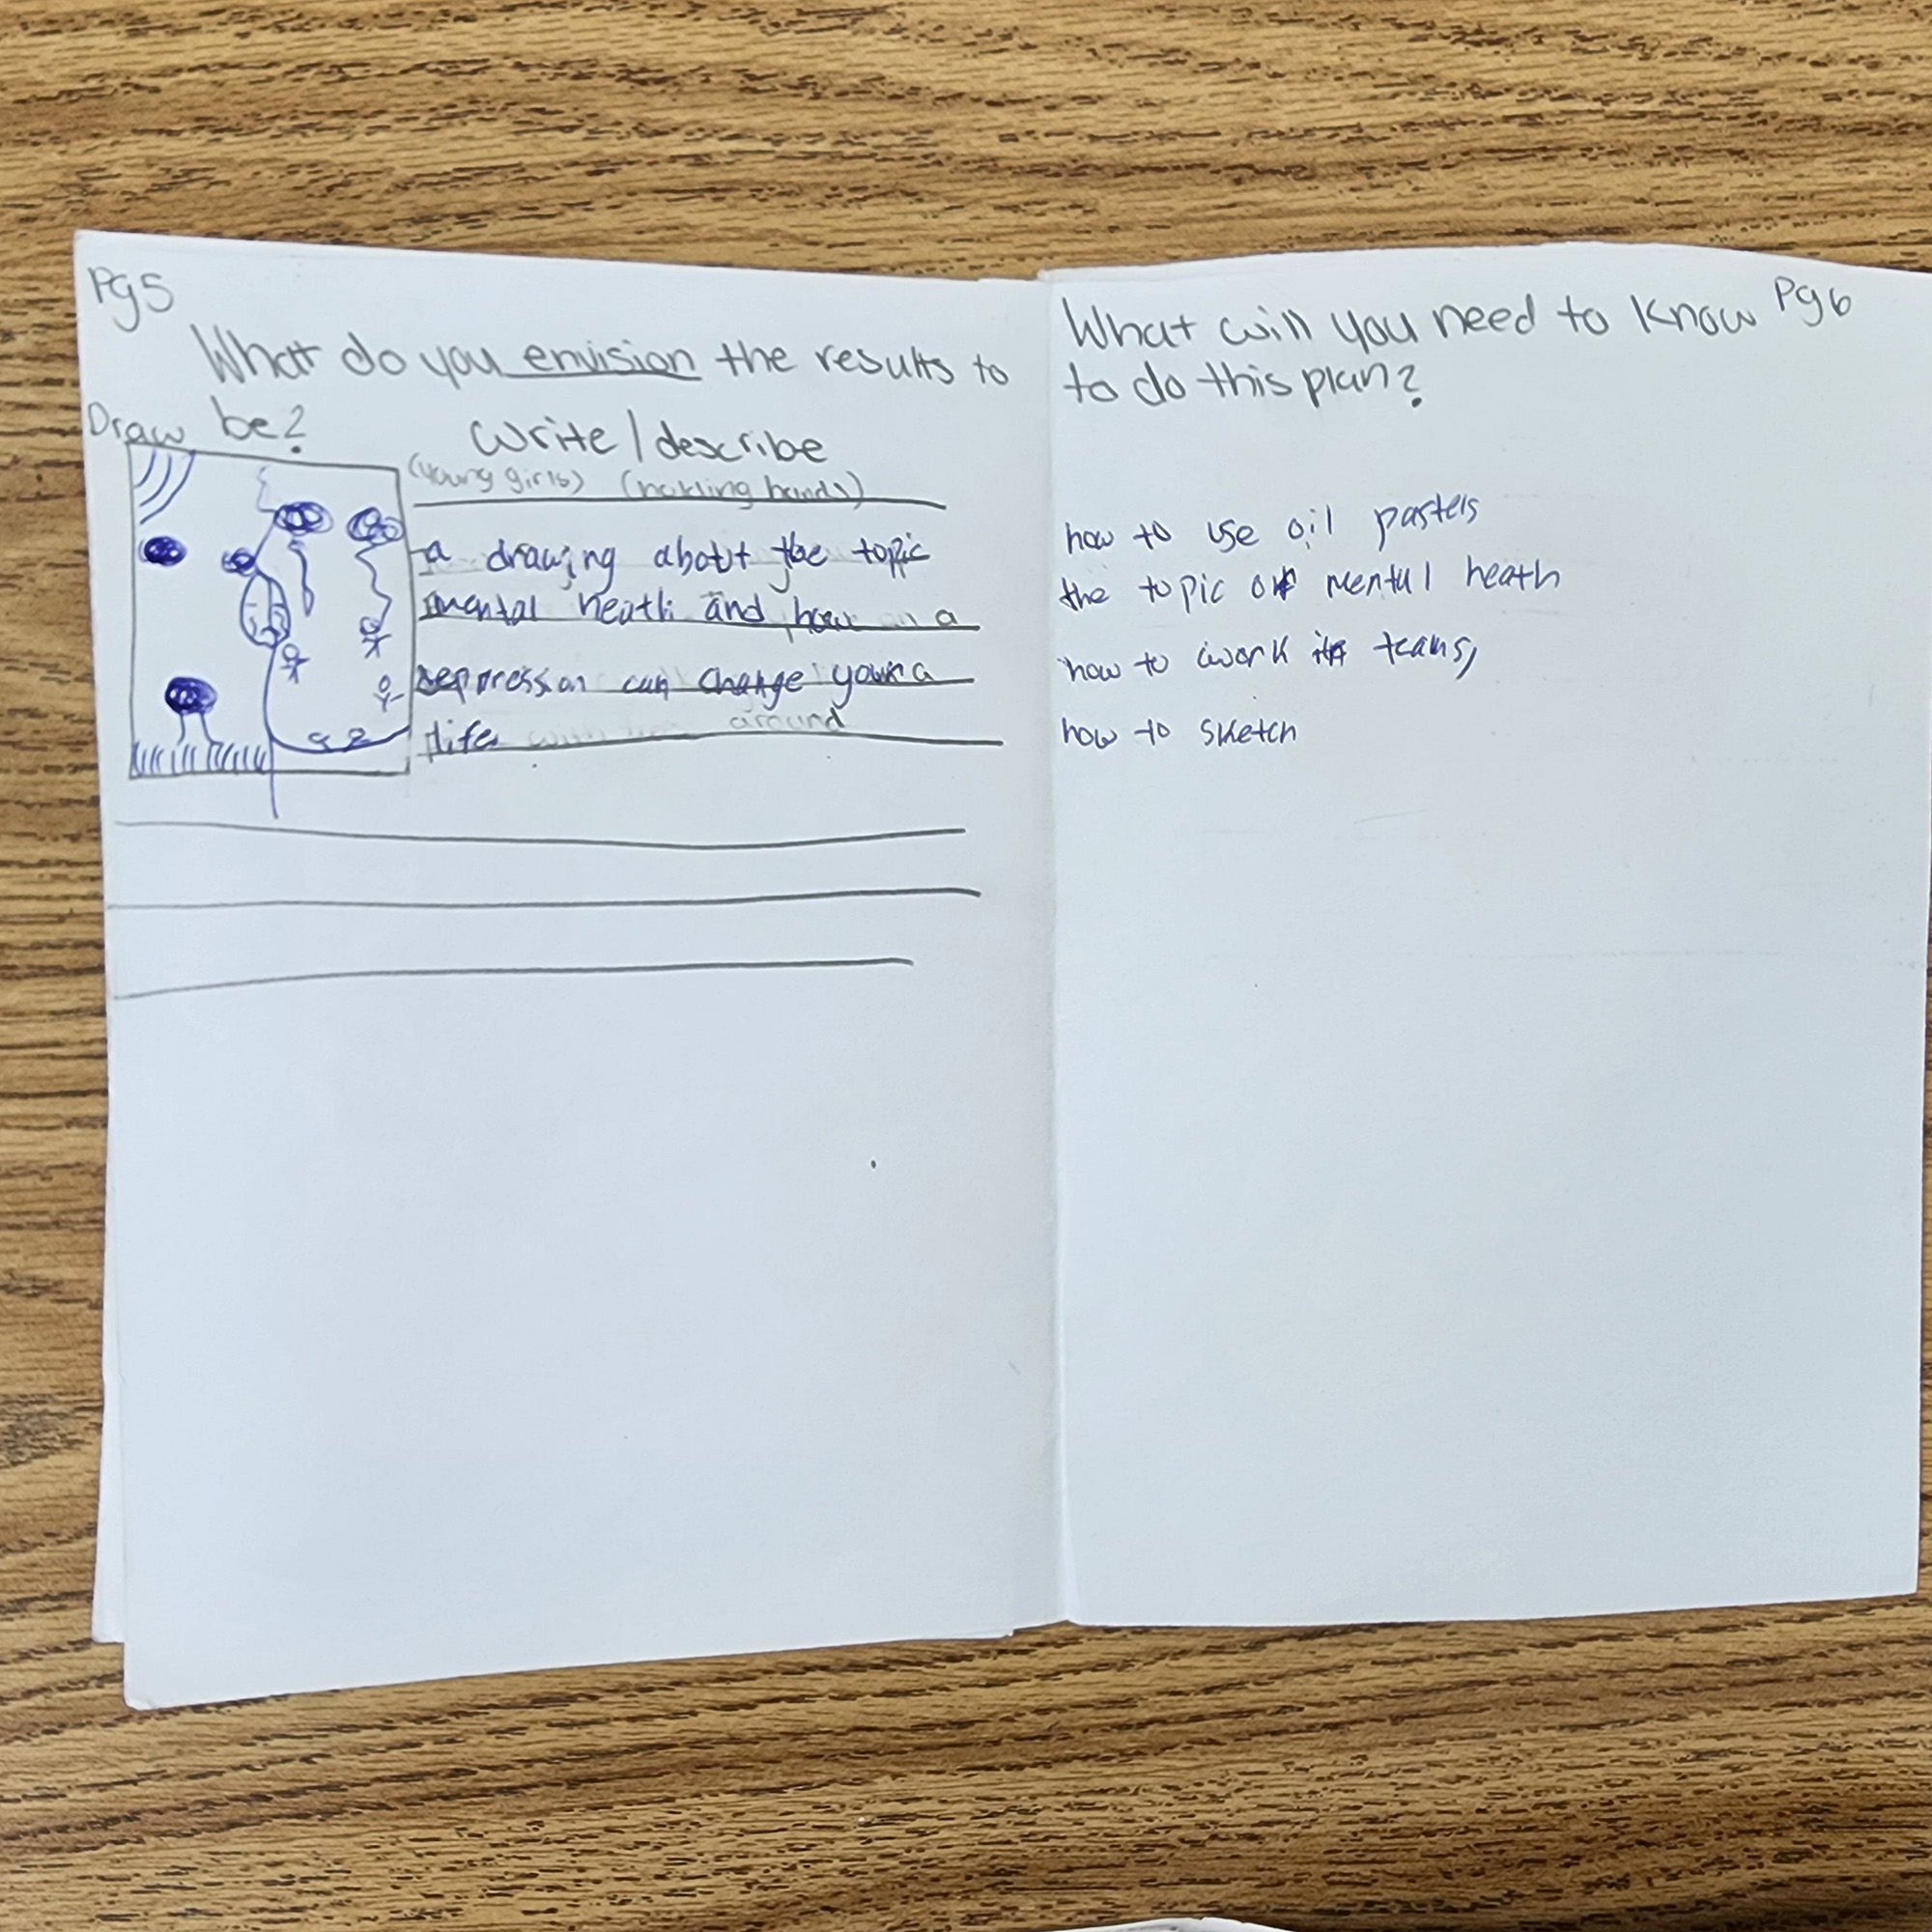 Pg5
What do you envision the results to
be?
Draw
Write/describe
(young girls) (holding hands)
a drawing about the topic
mental heath and how a
depression can change your
life around
Pg6
What will you need to know
to do this plan?
how to use oil pastels
the topic of mental heath
how to work in teams,
how to sketch